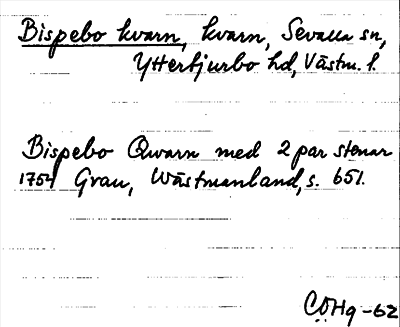 Bispebo kvarn, kvarn, Sevalla sn,
Ytterbjurbo hd, Västm. l.
Bispebo Qwarn med 2 par stenar
1754 Grau, Wästmanland, s. 651.
CÖHg -62